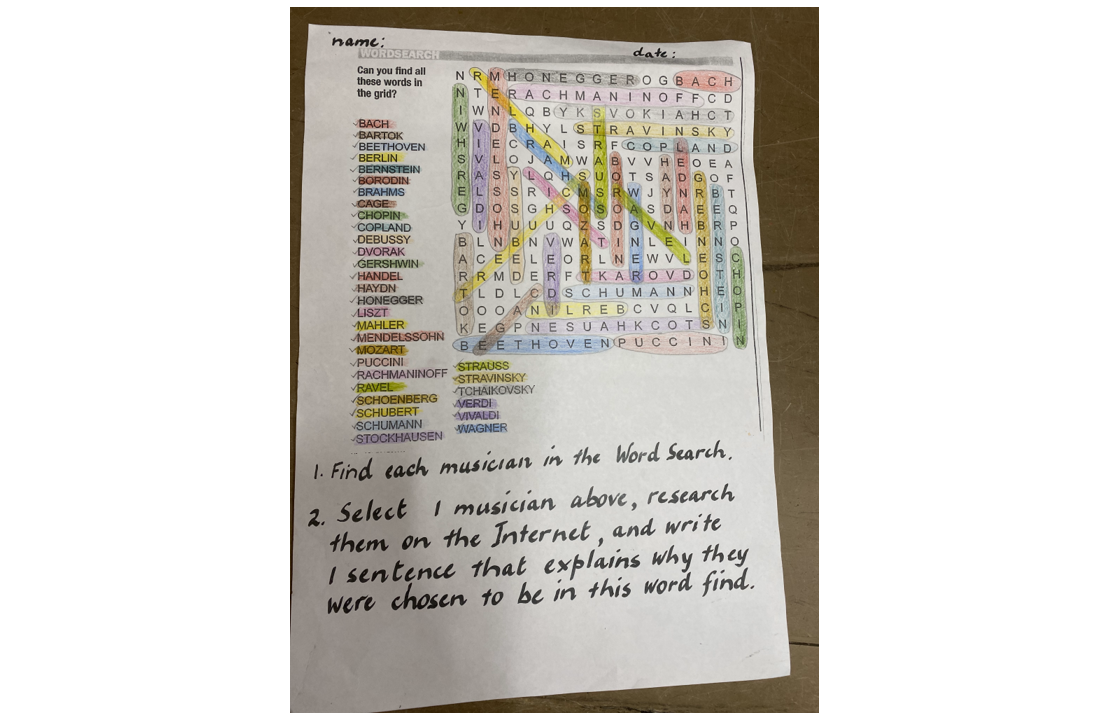 name:
date:
WORDSEARCH
Can you find all
these words in
the grid?
BACH
BARTOK
BEETHOVEN
BERLIN
BERNSTEIN
BORODIN
BRAHMS
CAGE
CHOPIN
COPLAND
DEBUSSY
DVORAK
GERSHWIN
HANDEL
HAYDN
HONEGGER
LISZT
MAHLER
MENDELSSOHN
MOZART
PUCCINI
RACHMANINOFF
RAVEL
SCHOENBERG
SCHUBERT
SCHUMANN
STOCKHAUSEN
STRAUSS
STRAVINSKY
TCHAIKOVSKY
VERDI
VIVALDI
WAGNER
N R M H O N E G G E R O G B A C H
N T E R A C H M A N I N O F F C D
I W N L Q B Y K S V O K I A H C T
W V D B H Y L S T R A V I N S K Y
H I E C R A I S R F C O P L A N D
S V L O J A M W A B V V H E O E A
R A S Y L Q H S U O T S A D G O F
E L S S R I C M S R W J Y N R B T
G D O S G H S O S O A S D A E E Q
Y I H U U U Q Z S D G V N H B R P
B L N B N V W A T I N L E I N N O
A C E E L E O R L N E W V L E S C
R R M D E R F T K A R O V D O T H
T L D L C D S C H U M A N N H E O
O O O A N I L R E B C V Q L C I P
K E G P N E S U A H K C O T S N I
B E E T H O V E N P U C C I N I N
1. Find each musician in the Word Search.
2. Select 1 musician above, research
them on the Internet, and write
1 sentence that explains why they
were chosen to be in this word find.